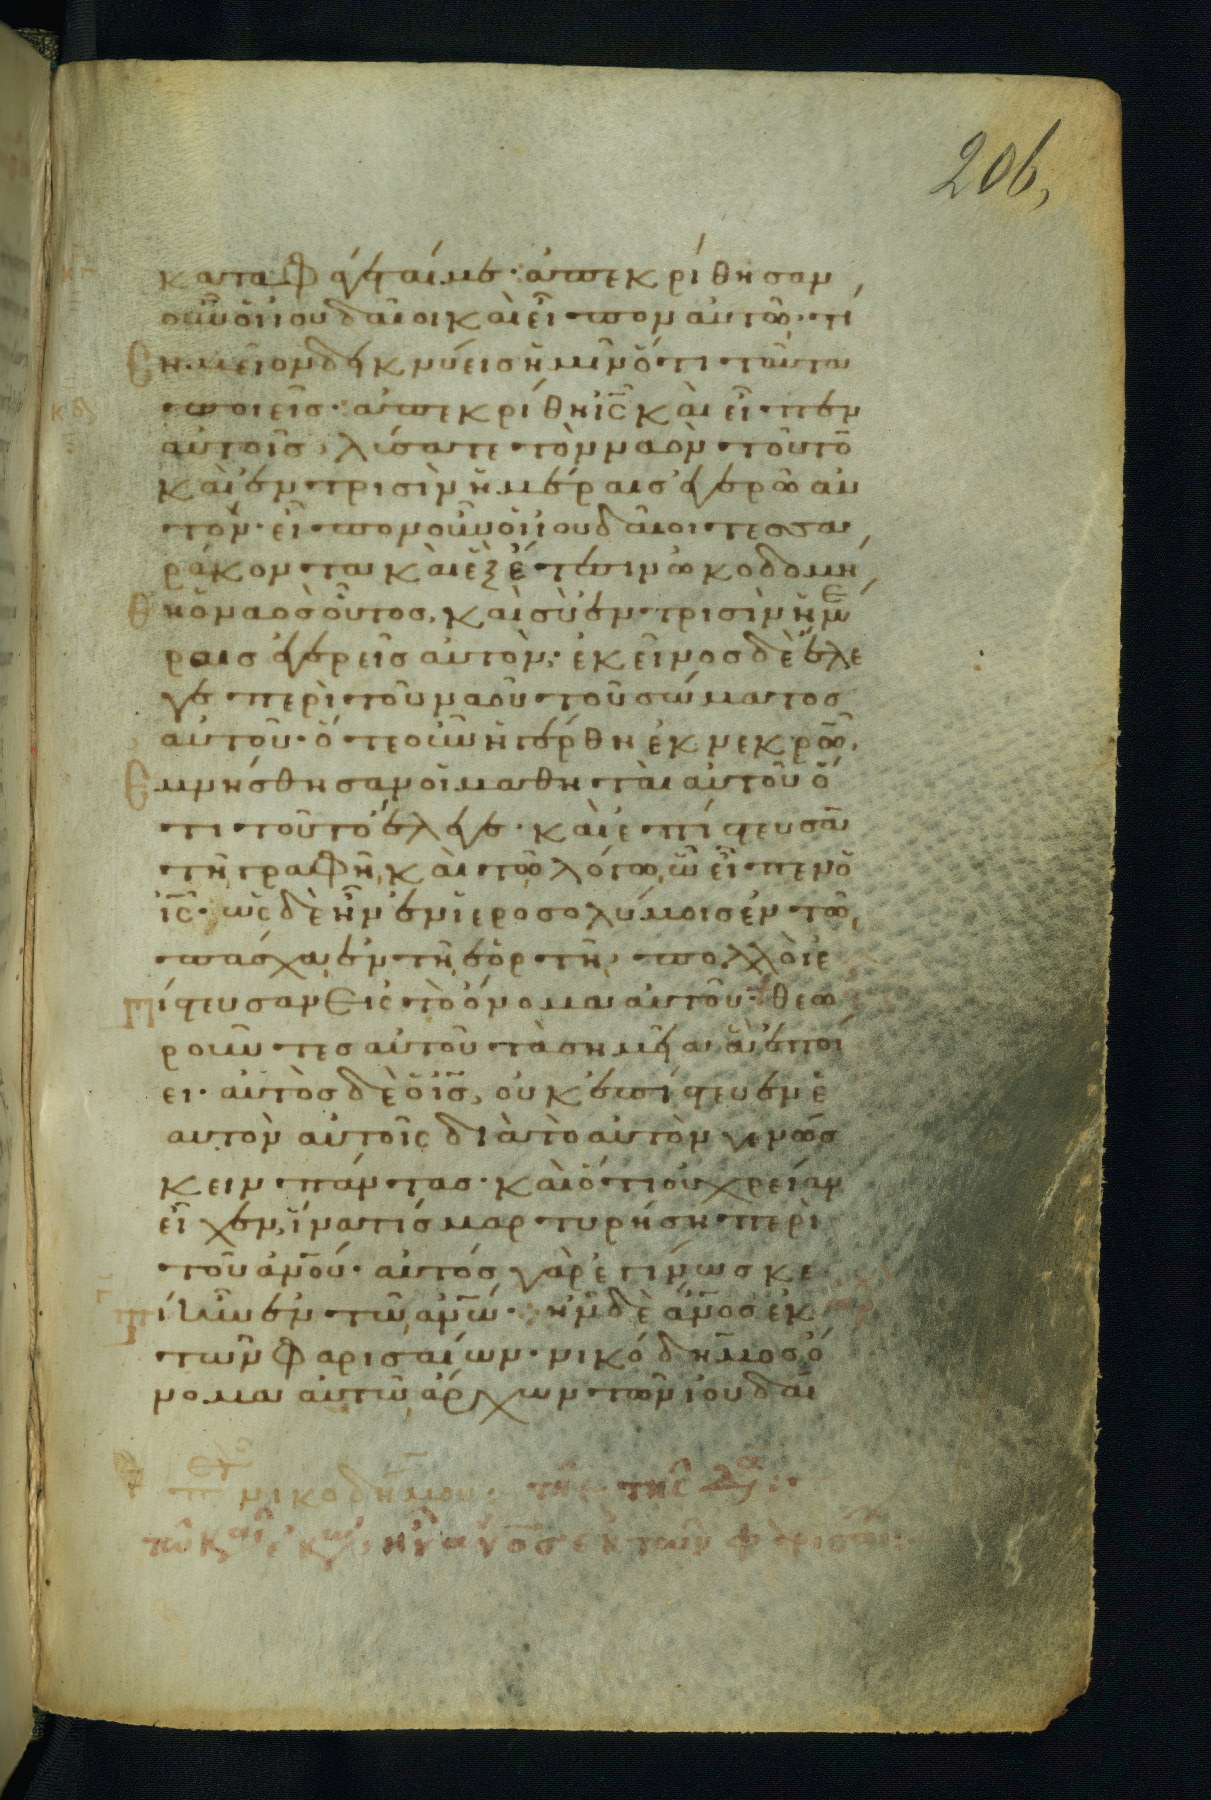 206,
κγ
καταφάγεταί με· ἀπεκρίθησαν
οὖν οἱ ἰουδαῖοι καὶ εἶπον αὐτῶ· τί
σημεῖον δεικνύεις ἡμῖν ὅτι ταῦτα
κδ
ποιεῖς· ἀπεκρίθη ἰς̅ καὶ εἶπεν
αὐτοῖς· λύσατε τὸν ναὸν τοῦτο̅
καὶ ἐν τρισὶν ἡμέραις ἐγερῶ αὐ
τόν· εἶπον οὖν οἱ ἰουδαῖοι· τεσσα
ράκοντα καὶ ἓξ ἔτεσιν ὠκοδομή
θη ὁ ναὸς οὗτος, καὶ σὺ ἐν τρισὶν ἡμε
ραις ἐγερεῖς αὐτόν· ἐκεῖνος δὲ ἔλε
γε περὶ τοῦ ναοῦ τοῦ σώματος
αὐτοῦ· ὅτε οὖν ἠγέρθη ἐκ νεκρῶ̅,
Ἐμνήσθησαν οἱ μαθηταὶ αὐτοῦ ὅ
τι τοῦτο ἔλεγε· καὶ ἐπίστευσα̅
τῆ γραφῆ, καὶ τῶ λόγω ὧ εἶπεν ὁ
ἰς̅· ὡς δὲ ἦν ἐν ἱεροσολύμοις ἐν τῶ
πάσχα ἐν τῆ ἑορτῆ, πολλοὶ ἐ
πίστευσαν εἰς τὸ ὄνομα αὐτοῦ· θεω
ροῦντες αὐτοῦ τὰ σημεῖα ἃ ἐποί
ει· αὐτὸς δὲ ὁ ἰς̅, οὐκ ἐπίστευεν ἑ
αυτὸν αὐτοῖς διὰ τὸ αὐτὸν γινώσ
κειν πάντας· καὶ ὅτι οὐ χρείαν
εἶχεν, ἵνα τίς μαρτυρήση περὶ
τοῦ ἀν̅ου· αὐτὸς γὰρ ἐγίνωσκε
τί ἦν ἐν τῶ ἀν̅ω· ἦν δὲ ἄν̅ος ἐκ
τῶν φαρισαίων· νικόδημος ὄ
νομα αὐτῶ ἄρχων τῶν ἰουδαί
νικοδήμου·
τῶ κ̅ ἐκ, ἦν ἄν̅ος ἐκ τῶν φαρισ